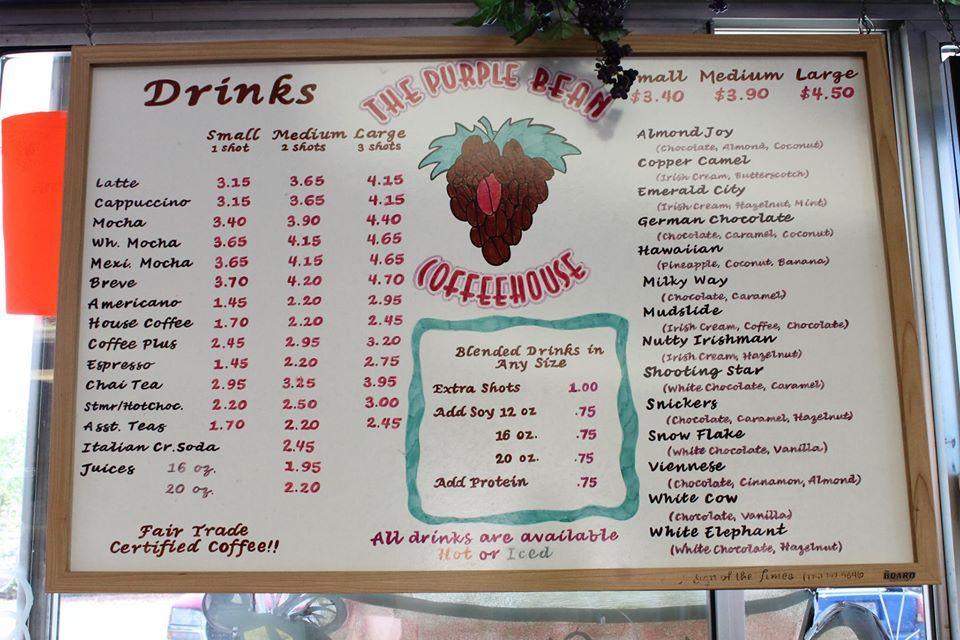 Drinks
THE PURPLE BEAN
COFFEEHOUSE
Small Medium Large
1 shot 2 shots 3 shots
Latte 3.15 3.65 4.15
Cappuccino 3.15 3.65 4.15
Mocha 3.40 3.90 4.40
Wh. Mocha 3.65 4.15 4.65
Mexi. Mocha 3.65 4.15 4.65
Breve 3.70 4.20 4.70
Americano 1.45 2.20 2.95
House Coffee 1.70 2.20 2.45
Coffee Plus 2.45 2.95 3.20
Espresso 1.45 2.20 2.75
Chai Tea 2.95 3.25 3.95
Stmr/HotChoc. 2.20 2.50 3.00
Asst. Teas 1.70 2.20 2.45
Italian Cr.Soda 2.45
Juices 16 oz. 1.95
20 oz. 2.20
Fair Trade
Certified Coffee!!
Blended Drinks in
Any Size
Extra Shots 1.00
Add Soy 12 oz .75
16 oz. .75
20 oz. .75
Add Protein .75
All drinks are available
Hot or Iced
Small Medium Large
$3.40 $3.90 $4.50
Almond Joy
(Chocolate, Almond, Coconut)
Copper Camel
(Irish Cream, Butterscotch)
Emerald City
(Irish Cream, Hazelnut, Mint)
German Chocolate
(Chocolate, Caramel, Coconut)
Hawaiian
(Pineapple, Coconut, Banana)
Milky Way
(Chocolate, Caramel)
Mudslide
(Irish Cream, Coffee, Chocolate)
Nutty Irishman
(Irish Cream, Hazelnut)
Shooting Star
(White Chocolate, Caramel)
Snickers
(Chocolate, Caramel, Hazelnut)
Snow Flake
(White Chocolate, Vanilla)
Viennese
(Chocolate, Cinnamon, Almond)
White Cow
(Chocolate, Vanilla)
White Elephant
(White Chocolate, Hazelnut)
Sign of the Times
BOARD